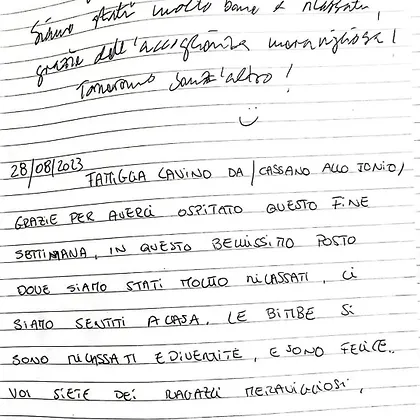 Siamo stati molto bene e rilassati,
grazie dell'accoglienza meravigliosa!
Torneremo senz'altro!
28/08/2023 FAMIGLIA LAVINO DA /CASSANO ALLO JONIO/
GRAZIE PER AVERCI OSPITATO QUESTO FINE
SETTIMANA, IN QUESTO BELLISSIMO POSTO
DOVE SIAMO STATI MOLTO RILASSATI, CI
SIAMO SENTITI A CASA. LE BIMBE SI
SONO RILASSATI E DIVERTITE, E SONO FELICE..
VOI SIETE DEI RAGAZZI MERAVIGLIOSI,